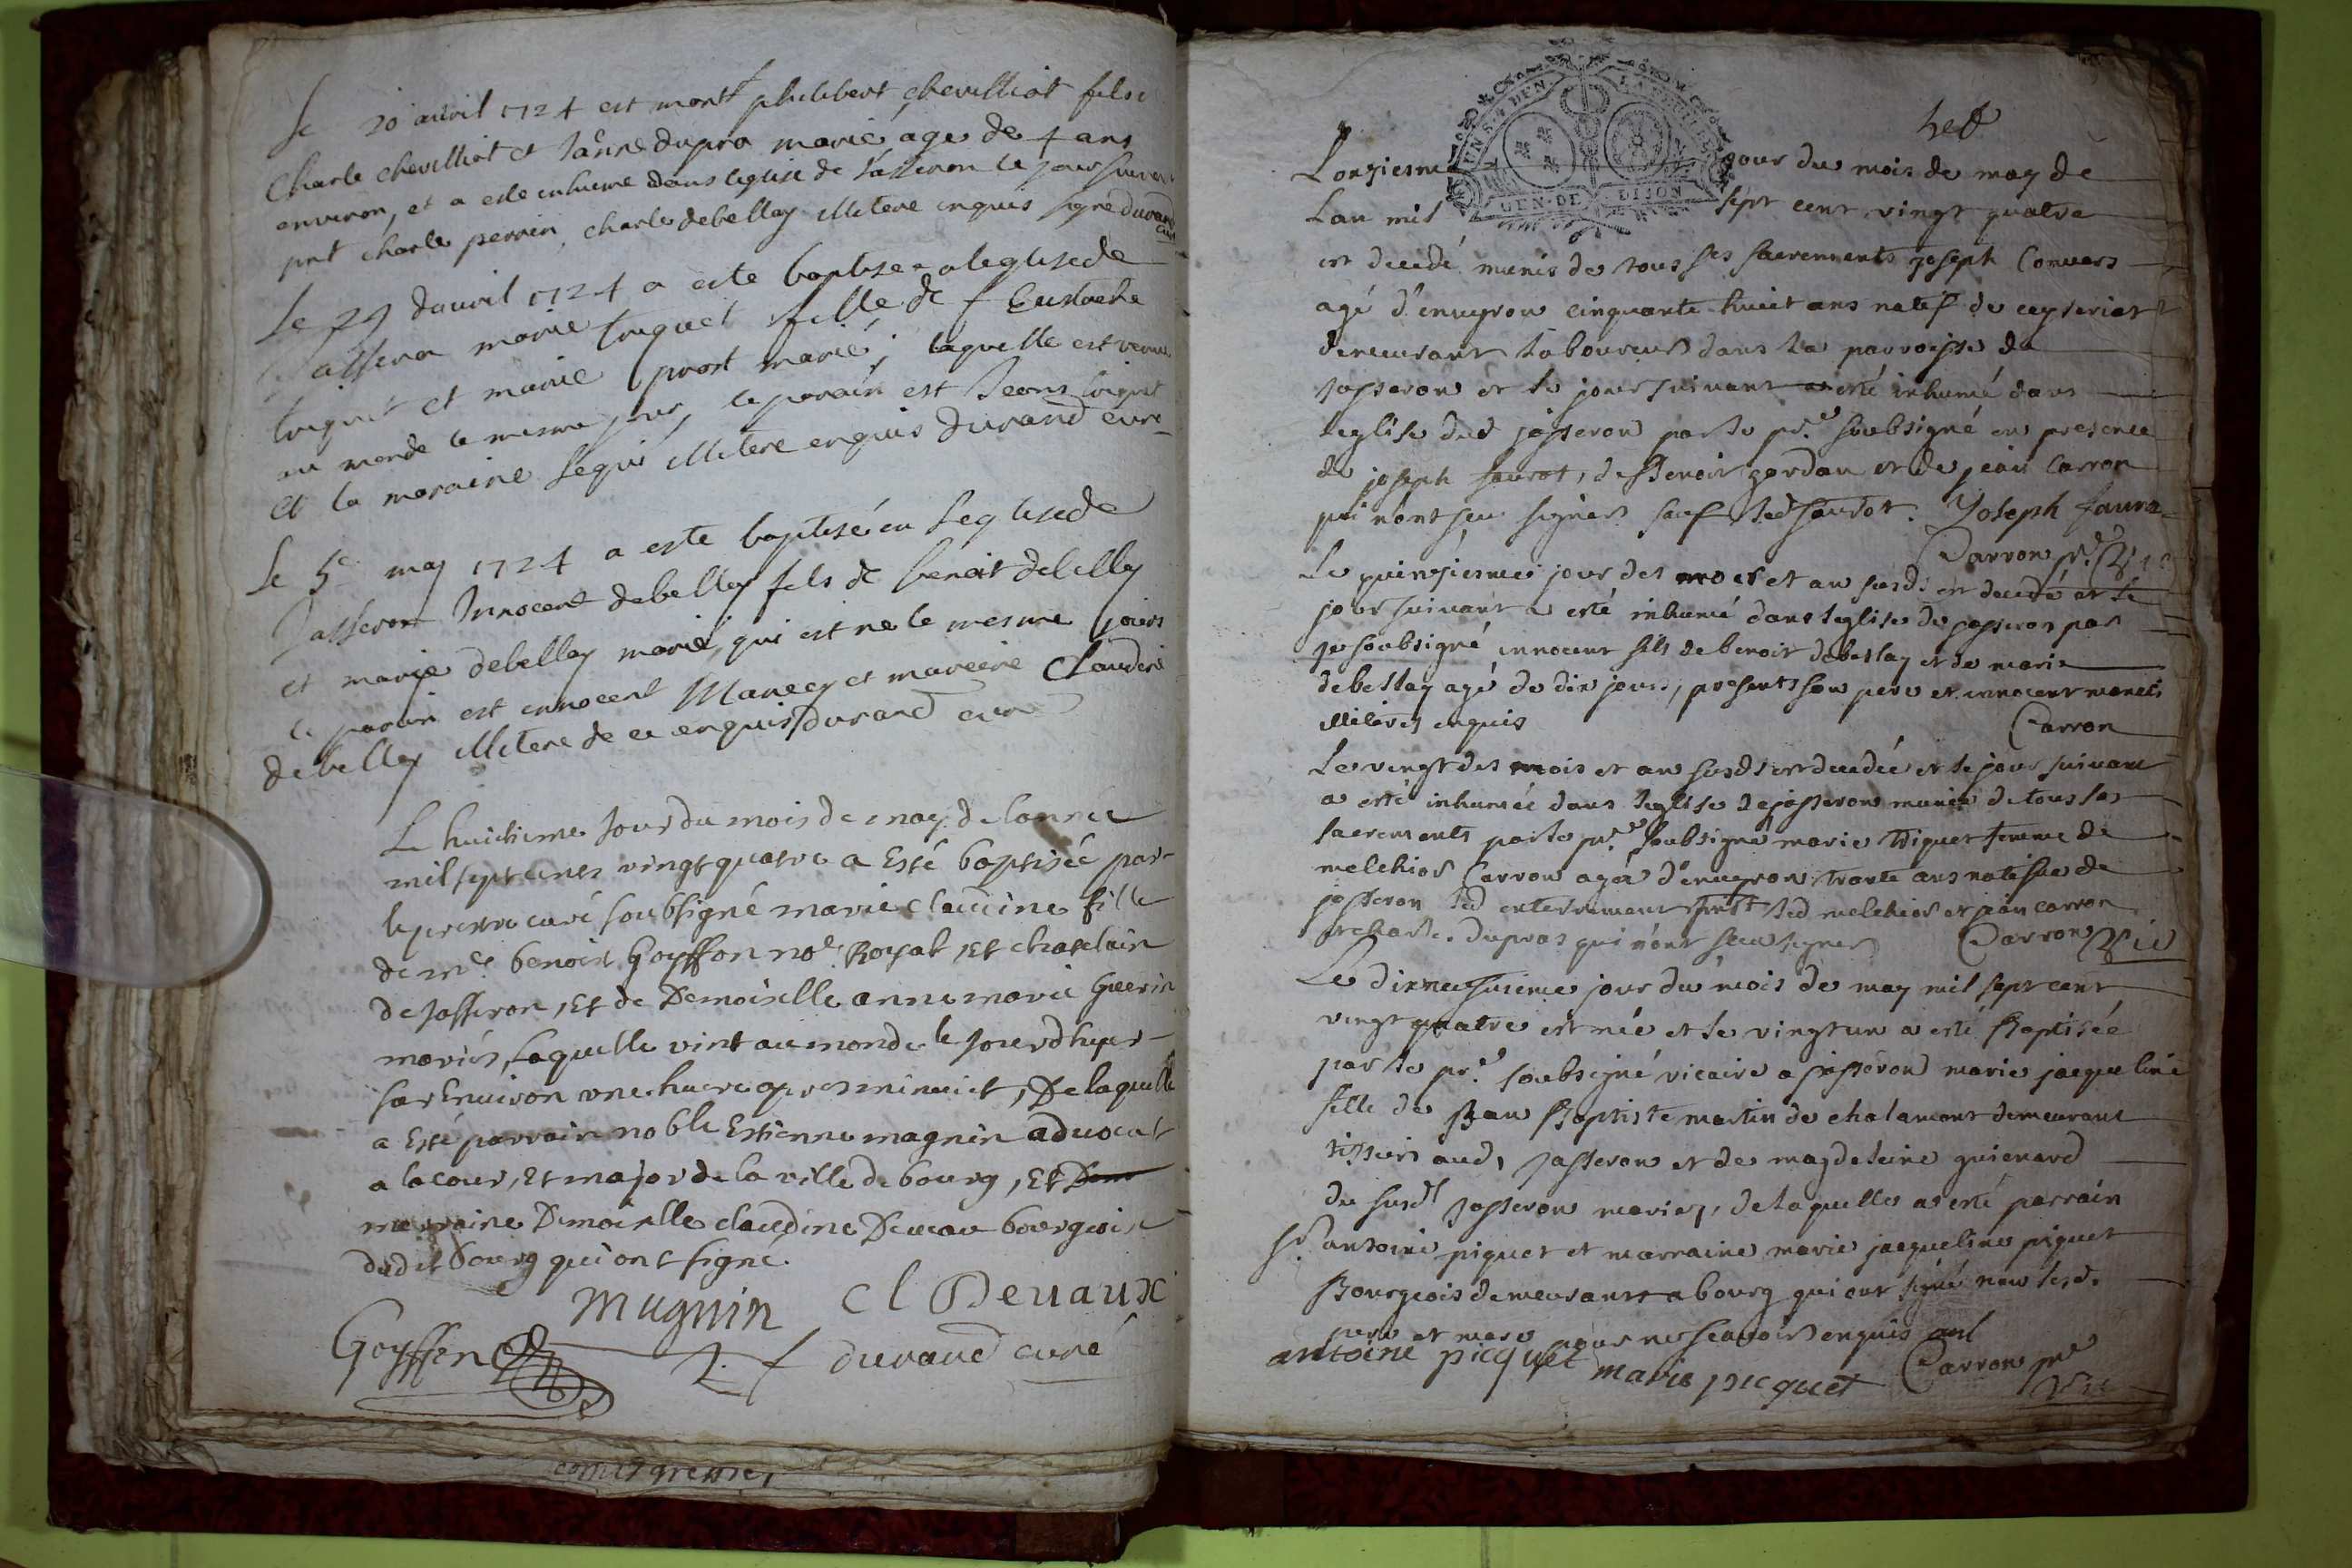 Le 20 auril 1724 est mort philibert cheuilliot fils
Charle cheuilliot et Jañne dupra marié, age de 4 ans
enuiron, et a este inhumé dans leglise de Jasseron le jour suiuant
pnt charle perrin, charle debellay illitere enquis signé durand
curé
Le 29 dauril 1724 a este baptisee a leglise de
Jasseron marie fille de Eustache
et marie prost marié, laquelle est venue
au monde le mesme jour, le parain est
et la maraine illitere enquis durand curé
Le 5e may 1724 a este baptisé en leglise de
Jasseron Innocent debellay fils de benoit debellay
et marie debellay marié, qui est ne le mesme jour
le parain est innocent Manecy et maraine Claudine
debellay illitere de ce enquis durand curé
Le huictieme jour du mois de may de lannee
mil sept cents vingt quatre a Esté baptisée par
le prestre curé soubsigné marie claudine fille
de me benoist Goyffon nore Royal, Et chatelain
de Jasseron, Et de Demoiselle anne marie Guerin
mariés, laquelle vint au monde le jour dhyer
sur Enuiron une heure apres minuict, De laquelle
a Esté parrain noble Estienne magnin aduocat
a la cour, Et major de la ville de bourg, Et
marraine Demoiselle claudine Deuau bourgeoise
dudit bourg qui ont signe.
Magnin Cl Deuaux
Goyffon durand curé
Lonziesme jour du mois de may de
Lan mil sept cent vingt quatre
GEN. DE DIJON
est decedé munis de tous ses sacrements joseph Conuers
agé d'enuyron cinquante huict ans natif de ceyseriat
demeurant laboureur dans la parroisse de
Jasseron et le jour suiuant a esté inhumé dans
leglise dud jasseron par le pre. soubsigné en presence
de joseph faurot, de Benoit gordan et de jean Carron
qui nont seu signer sauf led faurot. Yoseph faura
Carron pre Vic
Le quinziesme jour des mois et an susd. est decedé et le
jour suiuant a esté inhumé dans leglise de jasseron par
je soubsigné innocent fils de benoit debellay et de marie
debellay agé de dix jours, presents son pere et innocent maneci
illiteres enquis Carron
Le vingt des mois et an susds est decedée et le jour suiuant
a esté inhumée dans leglise de jasseron munie de tous ses
sacrements par le pre. soubsigné marie femme de
melchior Carron agée d'enuyron trante ans natifue de
jasseron led enterrement led melchior et jean carron
et charle dupras qui n'ont seu signer Carron Vic
Le dixneufuieme jour du mois de may mil sept cent
vingt quatre est née et le vingt un a esté Baptisée
par le pre. soubsigné vicaire a jasseron marie jacqueline
fille de Jean Baptiste martin de chalamont demeurant
tissier aud. Jasseron et de magdeleine guienard
du susdt Jasseron mariez, de laquelle a esté parrain
Sr. antoine piquet et marraine marie jacqueline piquet
Bourgeois demeurants a bourg qui ont signé non lesd.
pere et mere pour ne scauoir enquis
antoine picquet marie picquet Carron pre
Vic